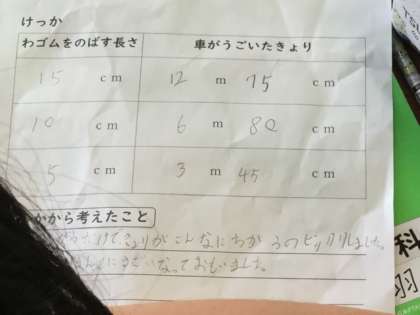 けっか
わゴムをのばす長さ 車がうごいたきょり
15 cm 12 m 75 cm
10 cm 6 m 80 cm
5 cm 3 m 45 cm
かから考えたこと
だけできょりがこんなにちがうのビックリしました。
なっておもいました。
科